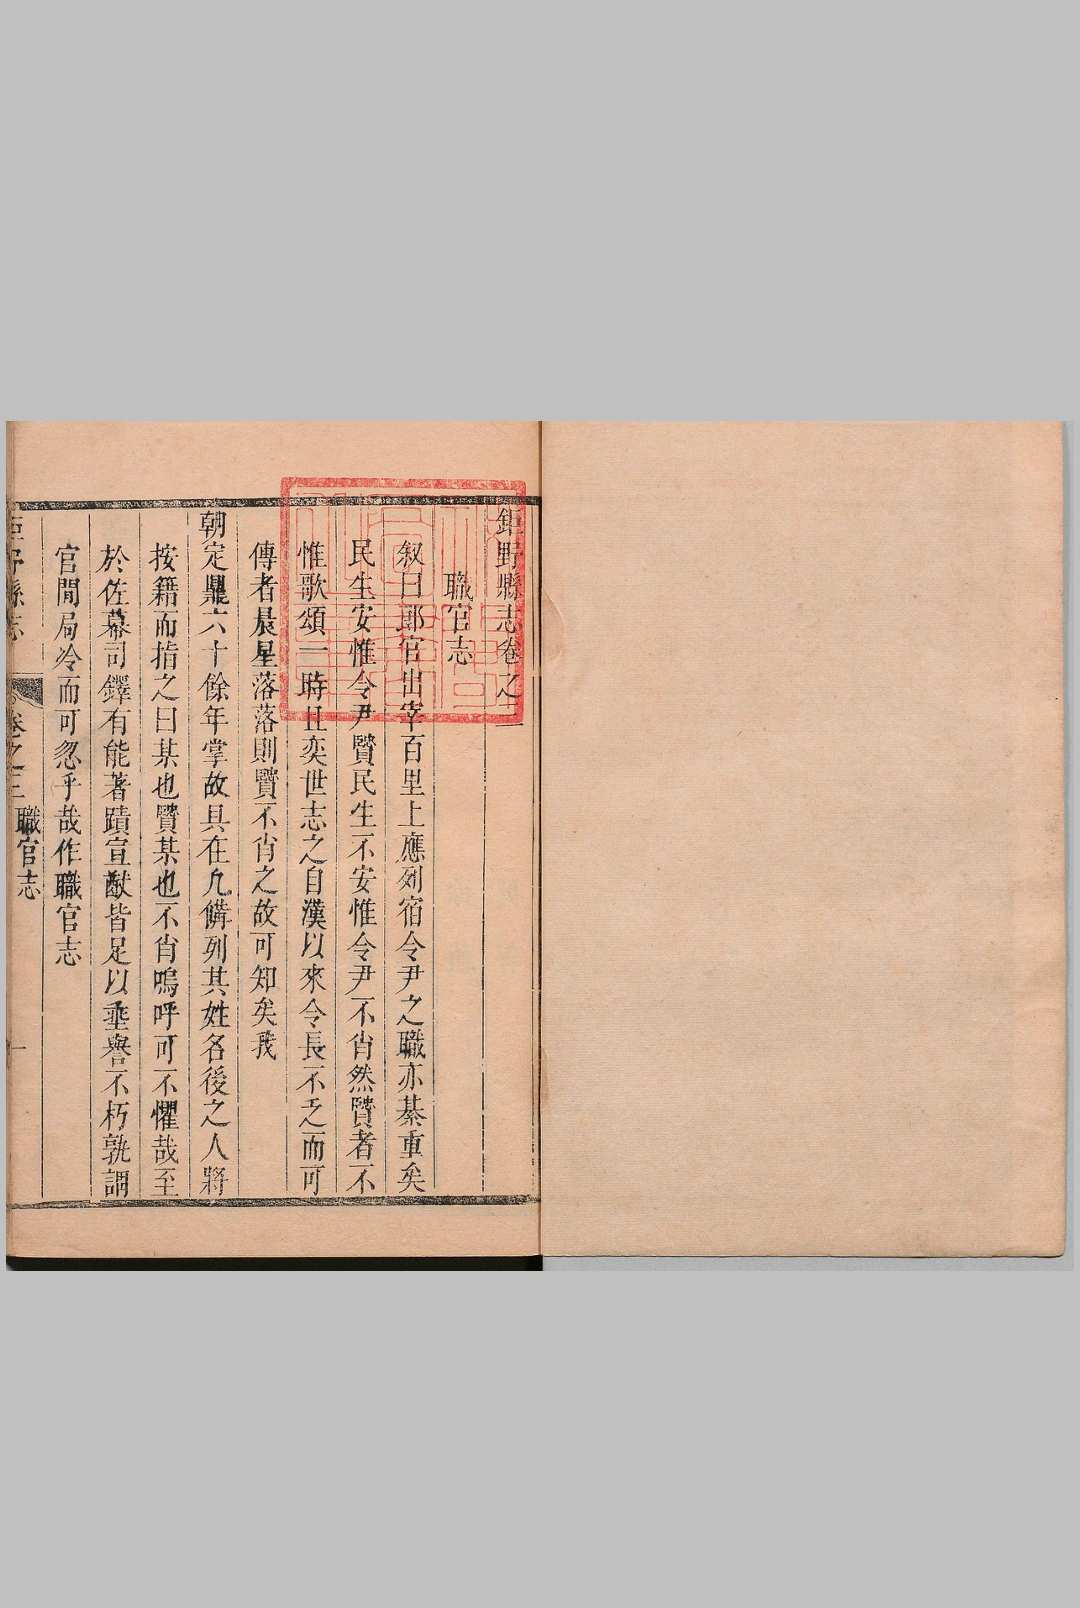 鉅野縣志卷之三
職官志
叙曰郎官出宰百里上應列宿令尹之職亦綦重矣
民生安惟令尹賢民生不安惟令尹不肖然賢者不
惟歌頌一時且奕世志之自漢以來令長不乏而可
傳者晨星落落則賢不肖之故可知矣我
朝定鼎六十餘年掌故具在凡備列其姓名後之人將
按籍而指之曰某也賢某也不肖嗚呼可不懼哉至
於佐幕司鐸有能著蹟宣猷皆足以垂譽不朽孰謂
官閒局冷而可忽乎哉作職官志
鉅野縣志 卷之三 職官志 一